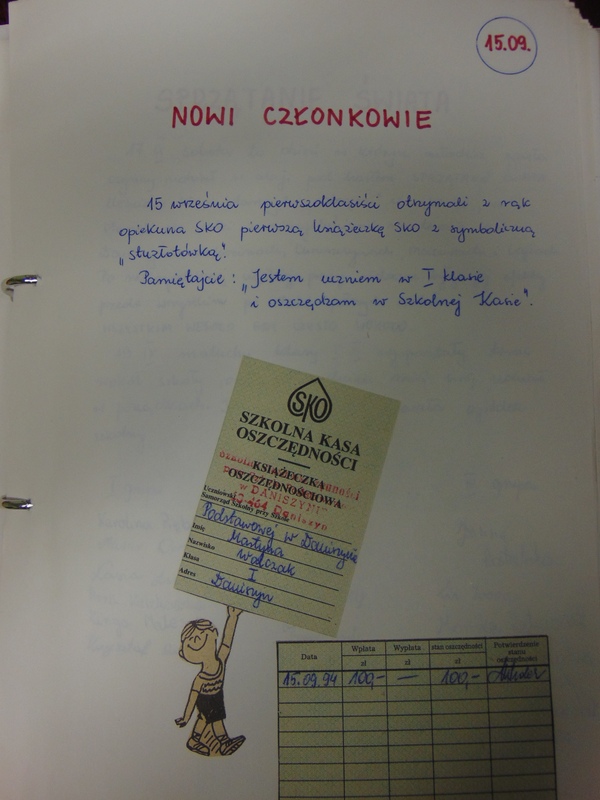 15.09.
NOWI CZŁONKOWIE
15 września pierwszoklasiści otrzymali z rąk
opiekuna SKO pierwszą książeczkę SKO z symboliczną
„stuzłotówką".
Pamiętajcie : „Jestem uczniem w I klasie
i oszczędzam w Szkolnej Kasie".
SKO
SZKOLNA KASA
OSZCZĘDNOŚCI
KSIĄŻECZKA
OSZCZĘDNOŚCIOWA
w DANISZYNIE
Uczniowski
Samorząd Szkolny przy Szkole
Podstawowej w Daniszynie
Imię Martyna
Nazwisko Walczak
Klasa I
Adres Daniszyn
Data Wpłata zł Wypłata zł stan oszczędności zł Potwierdzenie stanu oszczędności
15.09.94 100,- — 100,-